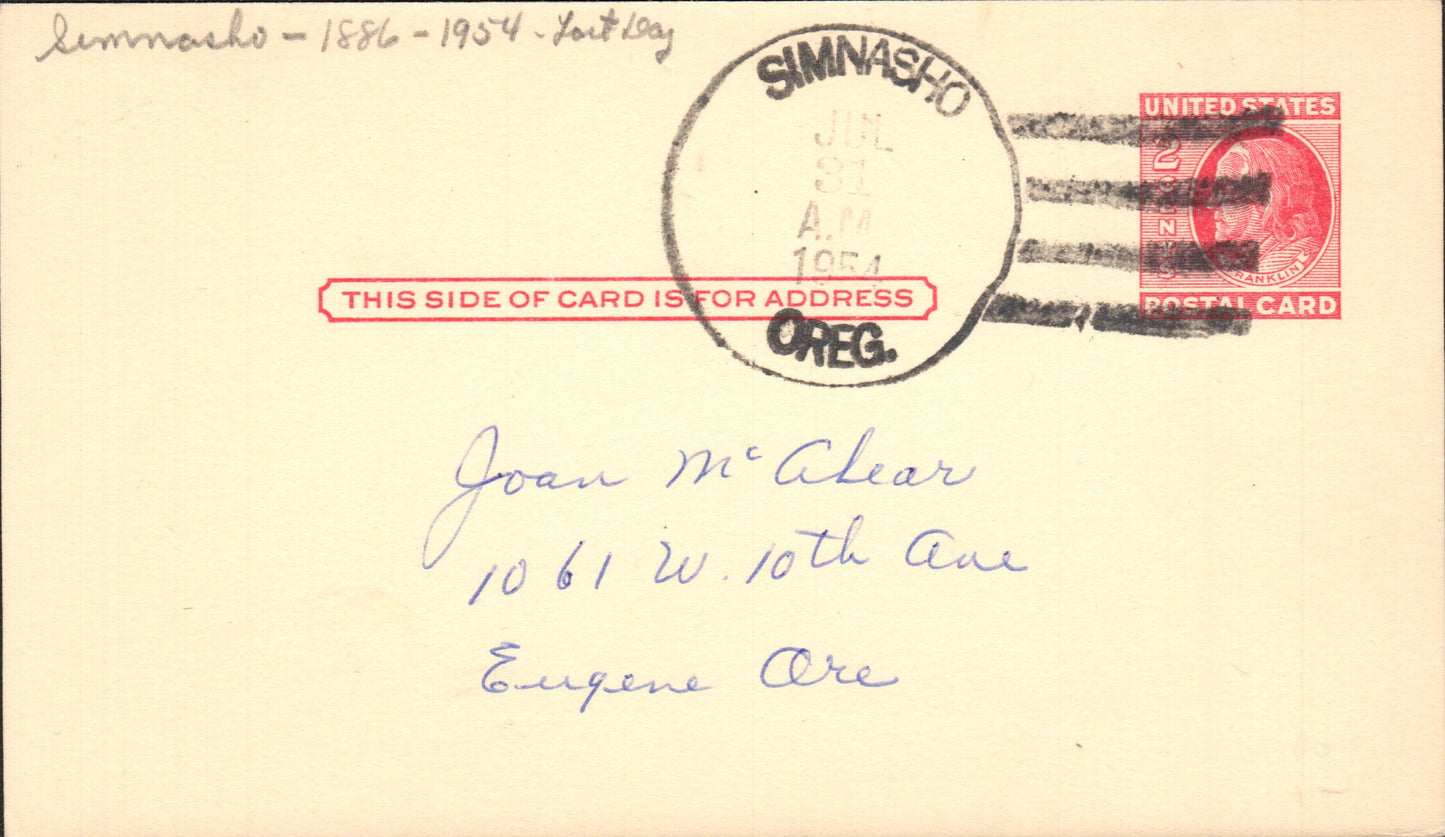 Simnasho - 1886 - 1954 - Last Day
SIMNASHO
JUL
31
A.M.
1954
OREG.
UNITED STATES
2 CENTS
FRANKLIN
POSTAL CARD
THIS SIDE OF CARD IS FOR ADDRESS
Joan Mc Alear
1061 W. 10th Ave
Eugene Ore